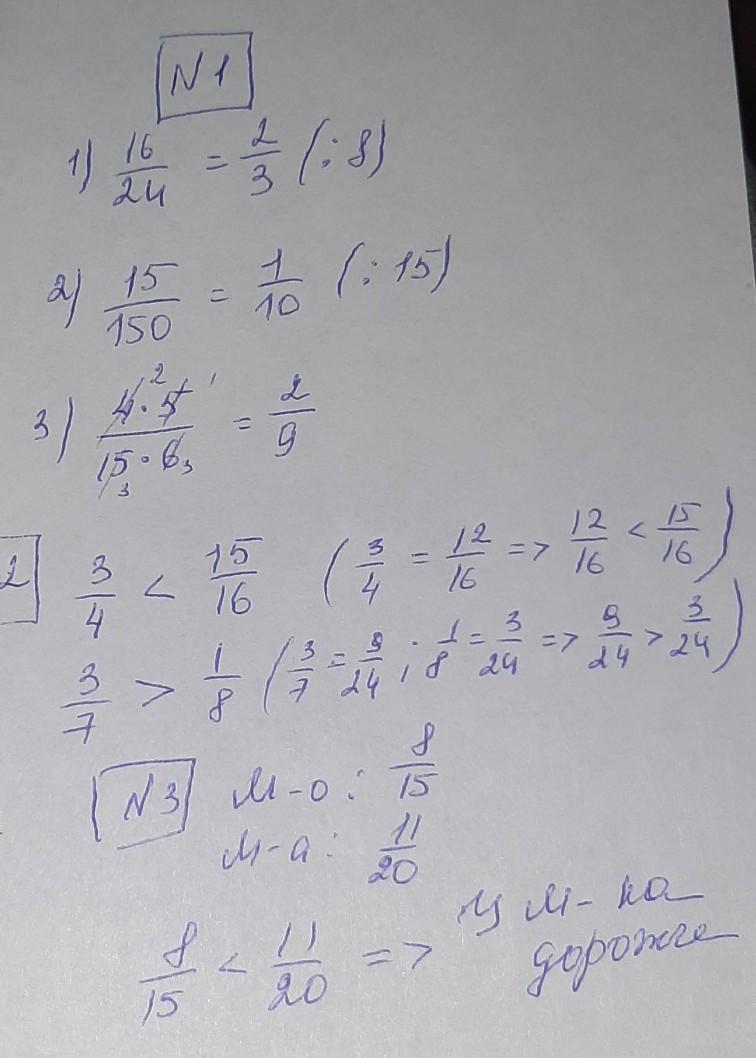 N1
1) 16/24 = 2/3 (:8)
2) 15/150 = 1/10 (:15)
3) 4² · 5¹ / 15₃ · 6₃ = 2/9
2 3/4 < 15/16 (3/4 = 12/16 => 12/16 < 15/16)
3/7 > 1/8 (3/7 = 9/24; 1/8 = 3/24 => 9/24 > 3/24)
N3 М-о: 8/15
М-а: 11/20
8/15 < 11/20 => М-ка
дорожке